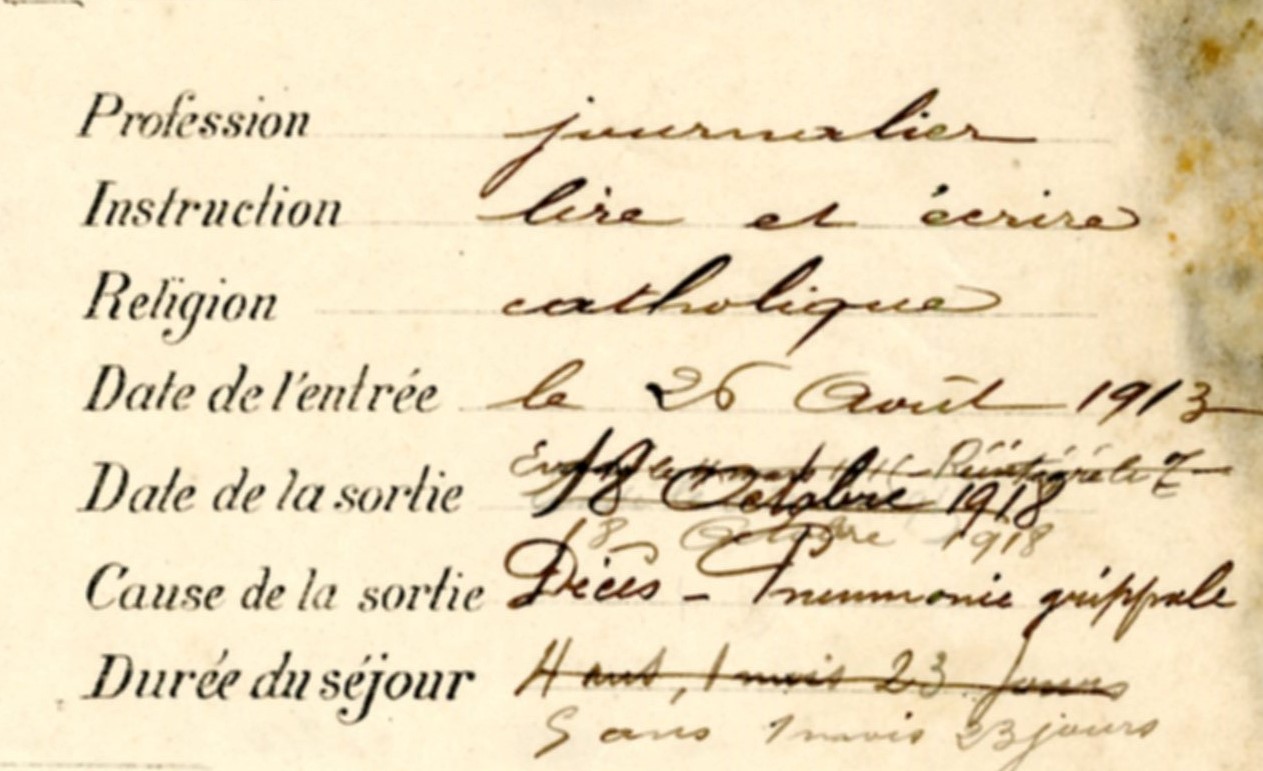 Profession journalier
Instruction lire et écrire
Religion catholique
Date de l'entrée le 26 Août 1913
Réintégré le
Date de la sortie 18 Octobre 1918
18 Octobre 1918
Cause de la sortie Décès - Pneumonie grippale
Durée du séjour 4 ans, 1 mois 23 jours
5 ans 1 mois 23 jours